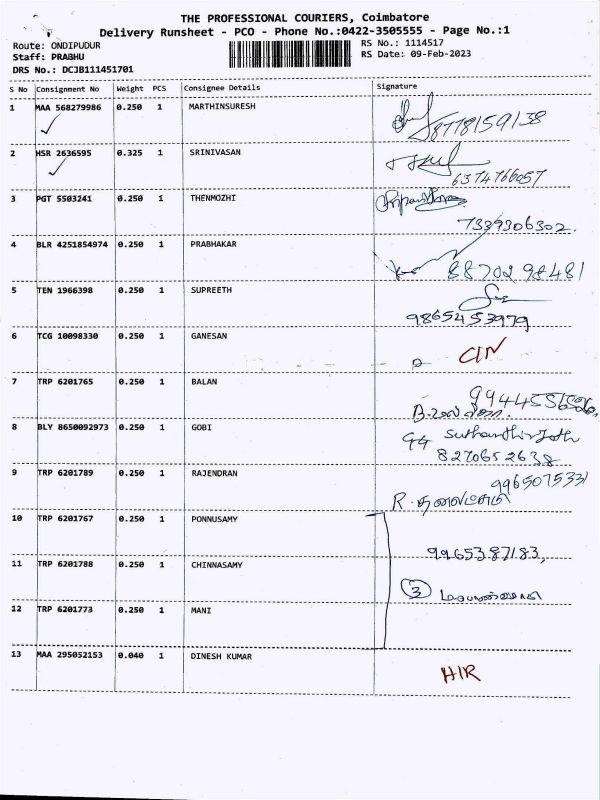 THE PROFESSIONAL COURIERS, Coimbatore
Delivery Runsheet - PCO - Phone No.:0422-3505555 - Page No.:1
Route: ONDIPUDUR
RS No.: 1114517
Staff: PRABHU
RS Date: 09-Feb-2023
DRS No.: DCJB111451701
S No Consignment No Weight PCS Consignee Details Signature
1 MAA 568279986 0.250 1 MARTHINSURESH
8778159138
2 HSR 2636595 0.325 1 SRINIVASAN
6374766057
3 PGT 5503241 0.250 1 THENMOZHI
7339306302.
4 BLR 4251854974 0.250 1 PRABHAKAR
8870298481
5 TEN 1966398 0.250 1 SUPREETH
9865453979
6 TCG 10098330 0.250 1 GANESAN
CIN
7 TRP 6201765 0.250 1 BALAN
8 BLY 8650092973 0.250 1 GOBI
8270652638
9 TRP 6201789 0.250 1 RAJENDRAN
9965075331
10 TRP 6201767 0.250 1 PONNUSAMY
9965387183,
11 TRP 6201788 0.250 1 CHINNASAMY
3
12 TRP 6201773 0.250 1 MANI
13 MAA 295052153 0.040 1 DINESH KUMAR
HIR